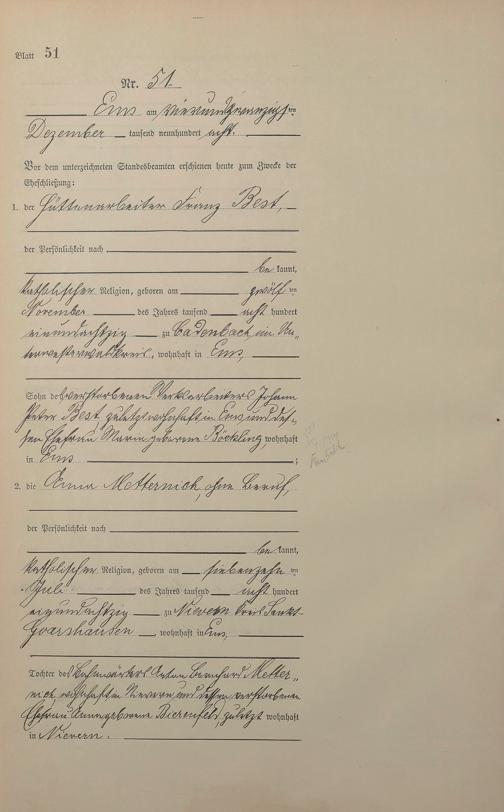 Blatt 51
Nr. 51.
Ems am vierundzwanzigsten
Dezember tausend neunhundert acht.
Vor dem unterzeichneten Standesbeamten erschienen heute zum Zwecke der
Eheschließung:
1. der Hüttenarbeiter Franz Best,
der Persönlichkeit nach
be kannt,
katholischer Religion, geboren am zwölften
November des Jahres tausend acht hundert
einundachtzig zu Cadenbach im Un-
terwesterwaldkreis, wohnhaft in Ems,
Sohn des verstorbenen Werksarbeiters Johann
Peter Best, zuletzt wohnhaft in Ems und des-
sen Ehefrau Maria geborene Böckling, wohnhaft
in Ems ;
2. die Anna Metternich, ohne Beruf,
der Persönlichkeit nach
be kannt,
katholischer Religion, geboren am siebenzehnten
Juli des Jahres tausend acht hundert
einundachtzig zu Nievern Kreis Sankt-
Goarshausen wohnhaft in Ems,
Tochter des Bahnwärters Anton Bernhard Metter-
nich, wohnhaft in Nievern und dessen verstorbenen
Ehefrau Anna geborene Bierenfeld, zuletzt wohnhaft
in Nievern.